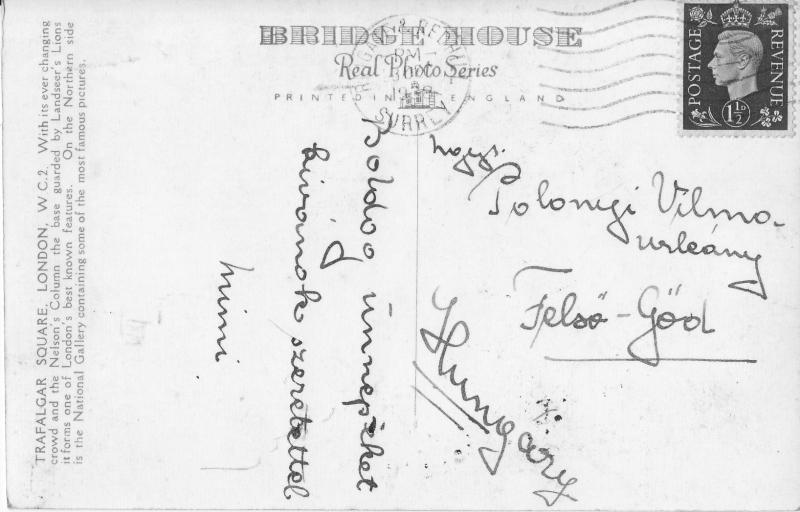 TRAFALGAR SQUARE, LONDON, W C.2. With its ever changing
crowd and the Nelson's Column the base guarded by Landseer's Lions
it forms one of London's best known features. On the Northern side
is the National Gallery containing some of the most famous pictures.
BRIDGE HOUSE
Real Photo Series
PRINTED IN ENGLAND
PM
SURREY
POSTAGE
REVENUE
1½D
Boldog ünnepeket
kivánok szeretettel
Mimi
nags.
Polonyi Vilma
urleány
Felső-Göd
Hungary